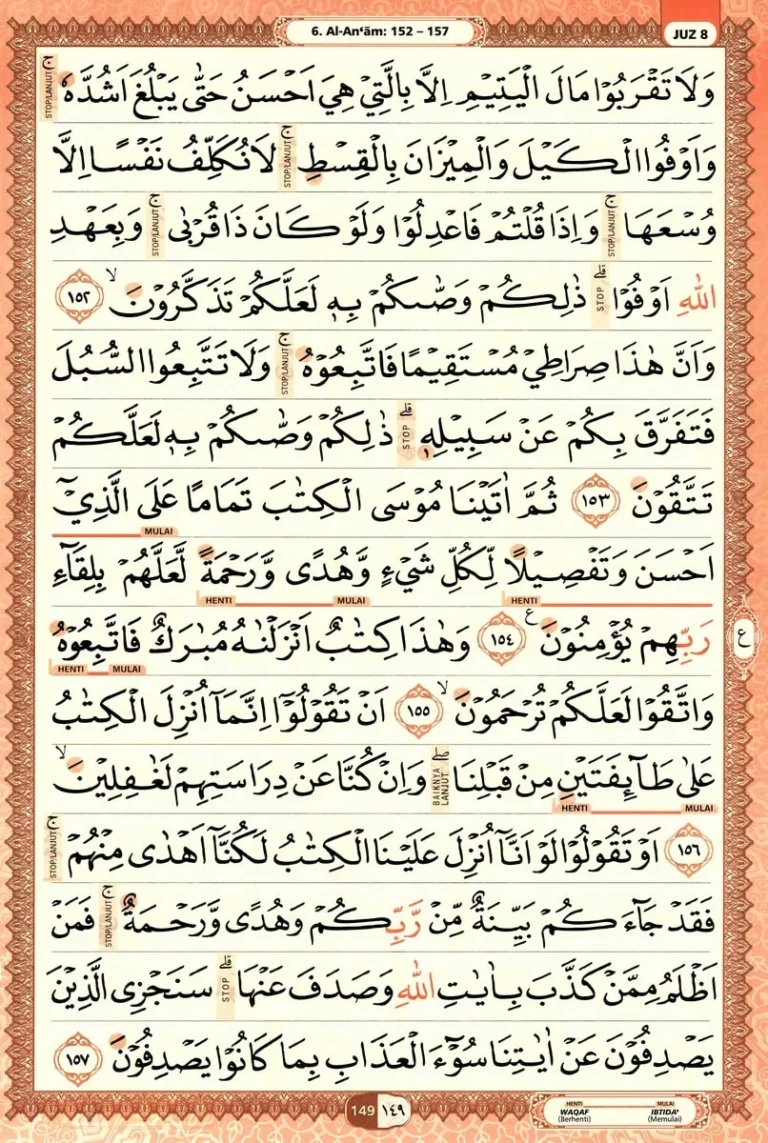 6. Al-An‘ām: 152 – 157
JUZ 8
وَلَا تَقْرَبُوْا مَالَ الْيَتِيْمِ اِلَّا بِالَّتِيْ هِيَ اَحْسَنُ حَتّٰى يَبْلُغَ اَشُدَّهٗ ۚ STOP/LANJUT
وَاَوْفُوا الْكَيْلَ وَالْمِيْزَانَ بِالْقِسْطِ ۚ STOP/LANJUT لَا نُكَلِّفُ نَفْسًا اِلَّا
وُسْعَهَا ۚ STOP/LANJUT وَاِذَا قُلْتُمْ فَاعْدِلُوْا وَلَوْ كَانَ ذَا قُرْبٰى ۚ STOP/LANJUT وَبِعَهْدِ
اللّٰهِ اَوْفُوْا ۗ STOP ذٰلِكُمْ وَصّٰىكُمْ بِهٖ لَعَلَّكُمْ تَذَكَّرُوْنَ ۙ ١٥٢
وَاَنَّ هٰذَا صِرَاطِيْ مُسْتَقِيْمًا فَاتَّبِعُوْهُ ۚ STOP/LANJUT وَلَا تَتَّبِعُوا السُّبُلَ
فَتَفَرَّقَ بِكُمْ عَنْ سَبِيْلِهٖ ۗ STOP ذٰلِكُمْ وَصّٰىكُمْ بِهٖ لَعَلَّكُمْ
تَتَّقُوْنَ ١٥٣ ثُمَّ اٰتَيْنَا مُوْسَى الْكِتٰبَ تَمَامًا عَلَى الَّذِيْٓ
MULAI
اَحْسَنَ وَتَفْصِيْلًا لِّكُلِّ شَيْءٍ وَّهُدًى وَّرَحْمَةً لَّعَلَّهُمْ بِلِقَاۤءِ
HENTI MULAI HENTI
رَبِّهِمْ يُؤْمِنُوْنَ ࣖ ١٥٤ وَهٰذَا كِتٰبٌ اَنْزَلْنٰهُ مُبٰرَكٌ فَاتَّبِعُوْهُ
ع
MULAI HENTI
وَاتَّقُوْا لَعَلَّكُمْ تُرْحَمُوْنَ ۙ ١٥٥ اَنْ تَقُوْلُوْٓا اِنَّمَآ اُنْزِلَ الْكِتٰبُ
عَلٰى طَاۤىِٕفَتَيْنِ مِنْ قَبْلِنَا ۖ BAIKNYA LANJUT وَاِنْ كُنَّا عَنْ دِرَاسَتِهِمْ لَغٰفِلِيْنَ ۙ
MULAI HENTI
١٥٦ اَوْ تَقُوْلُوْا لَوْ اَنَّآ اُنْزِلَ عَلَيْنَا الْكِتٰبُ لَكُنَّآ اَهْدٰى مِنْهُمْ ۚ STOP/LANJUT
فَقَدْ جَاۤءَكُمْ بَيِّنَةٌ مِّنْ رَّبِّكُمْ وَهُدًى وَّرَحْمَةٌ ۚ STOP/LANJUT فَمَنْ
اَظْلَمُ مِمَّنْ كَذَّبَ بِاٰيٰتِ اللّٰهِ وَصَدَفَ عَنْهَا ۗ STOP سَنَجْزِى الَّذِيْنَ
يَصْدِفُوْنَ عَنْ اٰيٰتِنَا سُوْۤءَ الْعَذَابِ بِمَا كَانُوْا يَصْدِفُوْنَ ١٥٧
149 ١٤٩
HENTI MULAI
WAQAF IBTIDA'
(Berhenti) (Memulai)